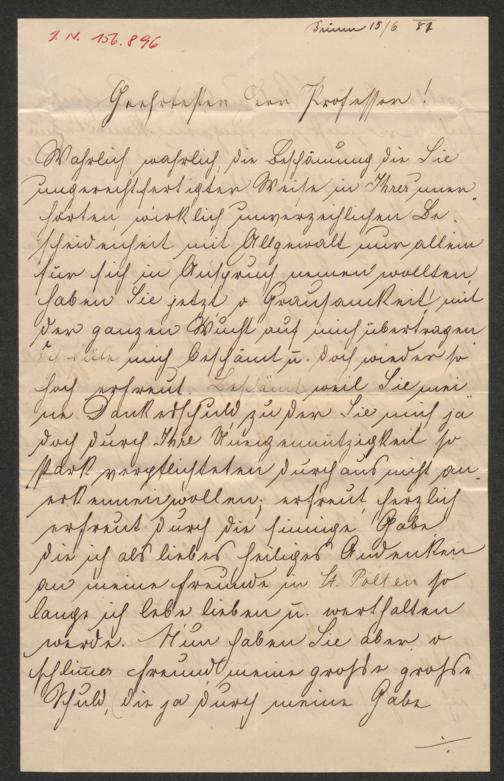 I. N. 156.896
15/6 87
Geehrtester Herr Professor!
Wahrlich, wahrlich, die Beschämung die Sie
ungerechtfertigter Weise in Ihrer uner-
hörten wirklich unverzeihlichen Be-
scheidenheit mit Allgewalt nur allein
für sich in Anspruch nemen wollten,
haben Sie jetzt o Grausamkeit, mit
der ganzen Wucht auf mich übertragen
mich beschämt u. doch wieder so
hoch erfreut. Beschämt weil Sie mei
ne Dankesschuld zu der Sie mich ja
doch durch Ihre Uneigennützigkeit so
stark verpflichteten durchaus nicht an-
erkennen wollen; erfreut, herzlich
erfreut durch die sinnige Gabe
die ich als liebes heiliges Andenken
an meine Freunde in St. Pölten so
lange ich lebe lieben u. werthalten
werde. Nun haben Sie aber o
schlimmer Freund meine große große
Schuld, die ja durch meine Gabe
./.